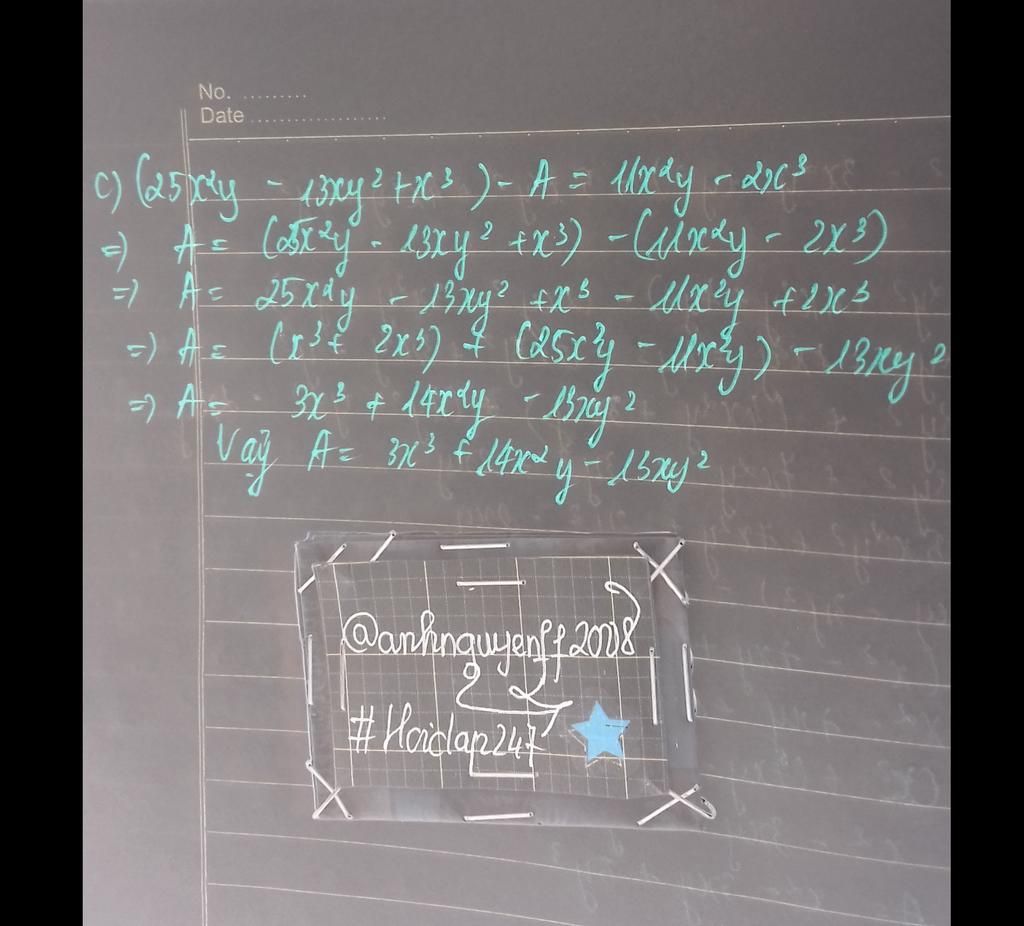 No. .........
Date ...................
c) (25x²y - 13xy² + x³ ) - A = 11x²y - 2x³
=) A = (25x²y - 13xy² + x³) - (11x²y - 2x³)
=) A = 25x²y - 13xy² + x³ - 11x²y + 2x³
=) A = (x³ + 2x³) + (25x²y - 11x²y) - 13xy²
=) A = 3x³ + 14x²y - 13xy²
Vậy A = 3x³ + 14x²y - 13xy²
@anhnguyenff2008
#Hoidap247